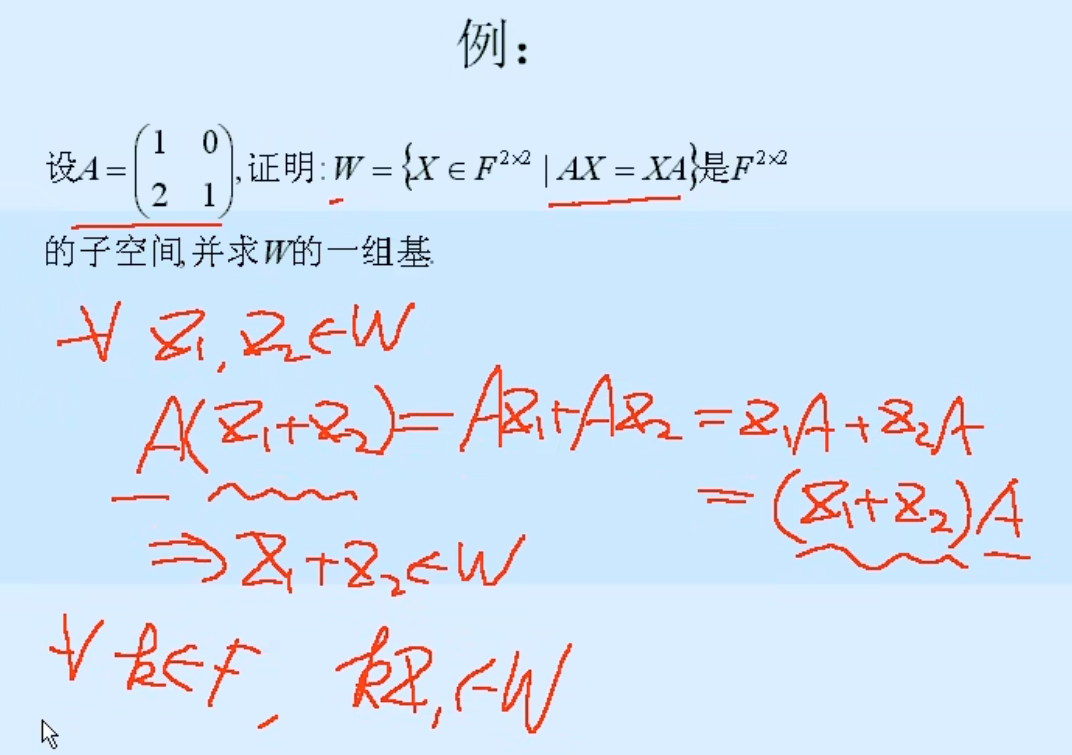 例：
设A = \begin{pmatrix} 1 & 0 \\ 2 & 1 \end{pmatrix}, 证明: W = {X ∈ F^{2×2} | AX = XA}是F^{2×2}
的子空间, 并求W的一组基.
∀ X₁, X₂ ∈ W
A(X₁+X₂) = AX₁+AX₂ = X₁A + X₂A
= (X₁+X₂)A
⇒ X₁+X₂ ∈ W
∀ k∈F, kX₁ ∈ W